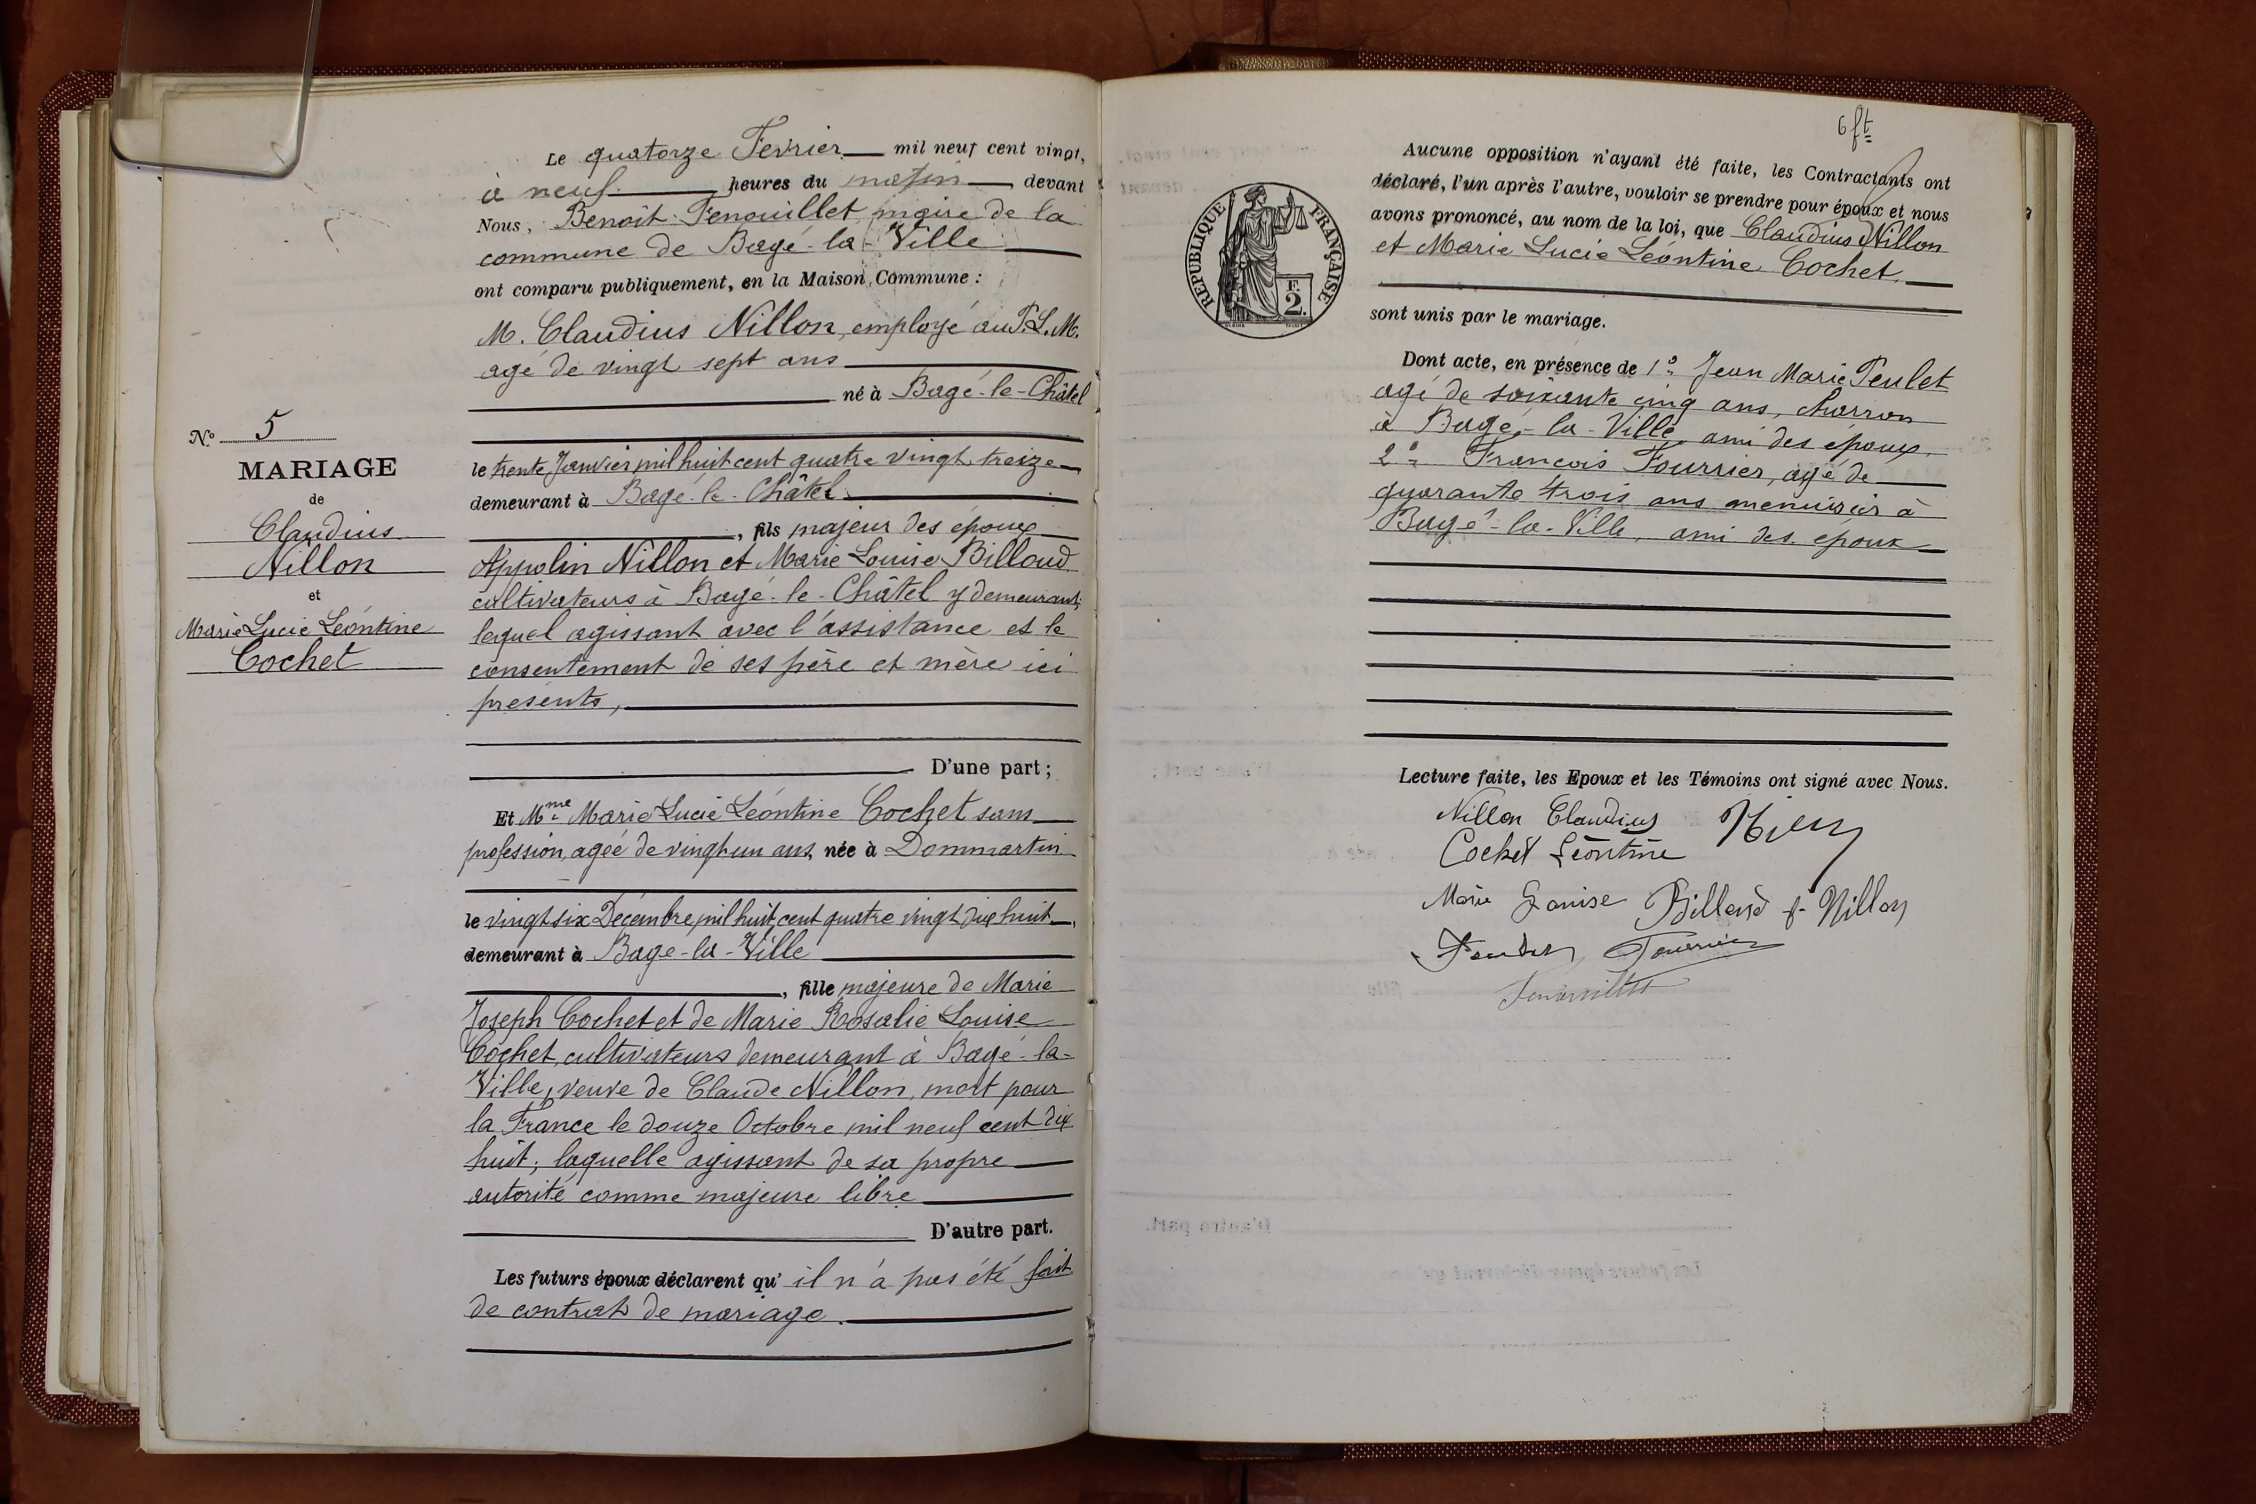 Le quatorze Fevrier mil neuf cent vingt,
à neuf heures du matin, devant
Nous, Benoît Fenouillet, maire de la
commune de Bagé-la-Ville
ont comparu publiquement, en la Maison Commune :
M. Claudius Nillon, employé au P.L.M.
agé de vingt sept ans
né à Bagé-le-Châtel
le trente Janvier mil huit cent quatre vingt treize
demeurant à Bagé-le-Châtel
, fils majeur des époux
Appolin Nillon et Marie Louise Billoud
cultivateurs à Bagé-le-Châtel y demeurant,
lequel agissant avec l'assistance et le
consentement de ses père et mère ici
présents,
D'une part ;
N° 5
MARIAGE
de
Claudius
Nillon
et
Marie Lucie Léontine
Cochet
Et Mme Marie Lucie Léontine Cochet sans
profession, agée de vingt un ans, née à Dommartin
le vingt six Décembre mil huit cent quatre vingt dix huit,
demeurant à Bage-la-Ville
, fille majeure de Marie
Joseph Cochet et de Marie Rosalie Louise
Cochet, cultivateurs demeurant à Bagé-la-
Ville, veuve de Claude Nillon, mort pour
la France le douze Octobre mil neuf cent dix
huit; laquelle agissant de sa propre
autorité comme majeure libre
D'autre part.
Les futurs époux déclarent qu'il n'a pas été fait
de contrat de mariage.
6 ft
Aucune opposition n'ayant été faite, les Contractants ont
déclaré, l'un après l'autre, vouloir se prendre pour époux et nous
avons prononcé, au nom de la loi, que Claudius Nillon
et Marie Lucie Léontine Cochet.
sont unis par le mariage.
REPUBLIQUE FRANÇAISE
F.
2.
Dont acte, en présence de 1° Jean Marie Peulet
agé de soixante cinq ans, charron
à Bagé-la-Ville, ami des époux.
2° François Fourrier, agé de
quarante trois ans menuisier à
Bagé-la-Ville, ami des époux
Lecture faite, les Epoux et les Témoins ont signé avec Nous.
Nillon Claudius
Cochet Léontine
Marie Louise Billoud f. Nillon
Fourrier
Fenouillet